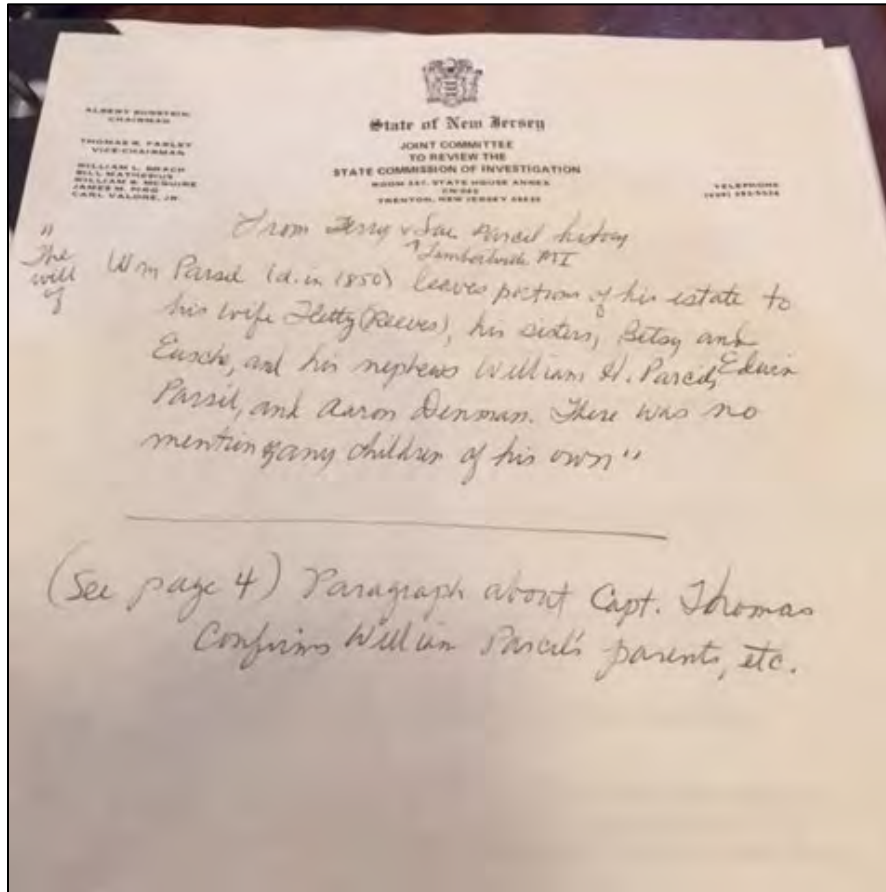 ALBERT BURSTEIN
CHAIRMAN
THOMAS R. FARLEY
VICE-CHAIRMAN
WILLIAM L. BRACH
BILL MATHESIUS
WILLIAM B. MCGUIRE
JAMES M. PIRO
CARL VALORE, JR.
State of New Jersey
JOINT COMMITTEE
TO REVIEW THE
STATE COMMISSION OF INVESTIGATION
STATE HOUSE ANNEX
TRENTON, NEW JERSEY
TELEPHONE
From Terry & Sue Parcil history
Lambertville MI
"The will of Wm Parsil (d. in 1850) leaves portions of his estate to
his wife Hetty (Reeves), his sisters, Betsy and
and his nephews William H. Parcil, Edwin
Parsil, and Aaron Denman. There was no
mention of any children of his own"
(See page 4) Paragraph about Capt. Thomas
Confirms William Parcil's parents, etc.